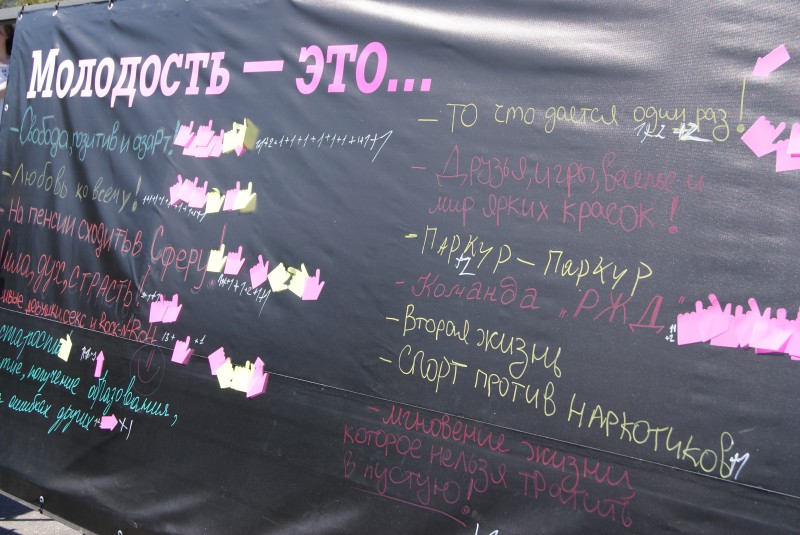 Молодость — это...
- Свобода, позитив и азарт!
+1+2+1+1+1+1+1+1+1+1
- Любовь ко всему!
- На пенсии сходить в Сферу!
Сила, дух, страсть!
девушки, секс и Rock-n-Roll
старости
получение образования,
ошибках других
+1
- То что дается один раз!
1+2 +2
- Друзья, игры, веселье и
мир ярких красок!
- Паркур - Паркур
+2
- Команда "РЖД"
+1
+2
- Вторая жизнь
- Спорт против наркотиков
+1
- мгновение жизни
которое нельзя тратить
в пустую!